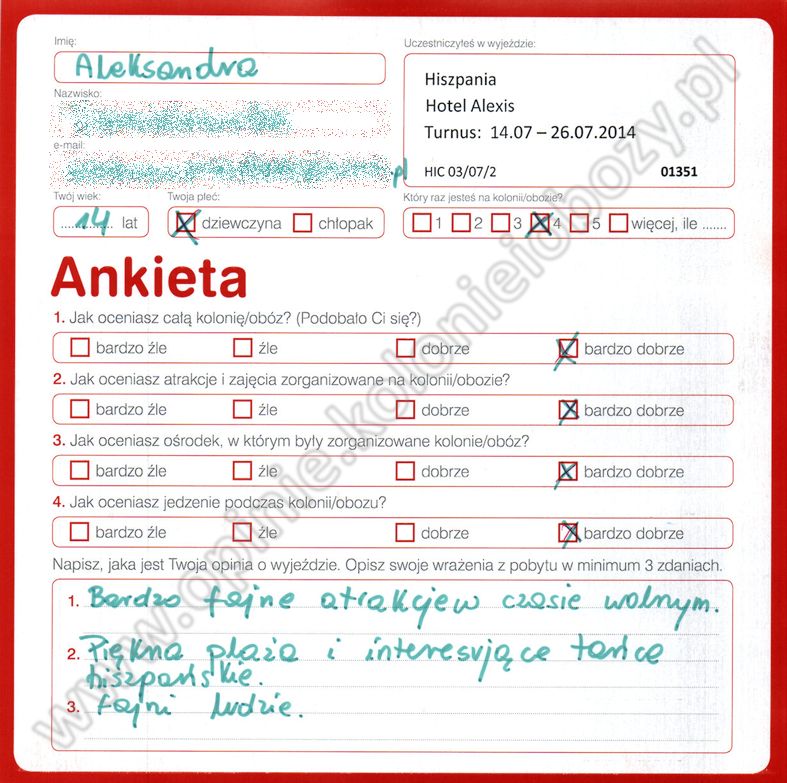 Imię:
Uczestniczyłeś w wyjeździe:
Aleksandra
Hiszpania
Hotel Alexis
Turnus: 14.07 – 26.07.2014
HIC 03/07/2 01351
Nazwisko:
e-mail:
.pl
Twój wiek: Twoja płeć: Który raz jesteś na kolonii/obozie?
14 lat dziewczyna chłopak 1 2 3 4 5 więcej, ile .......
Ankieta
1. Jak oceniasz całą kolonię/obóz? (Podobało Ci się?)
bardzo źle źle dobrze bardzo dobrze
2. Jak oceniasz atrakcje i zajęcia zorganizowane na kolonii/obozie?
bardzo źle źle dobrze bardzo dobrze
3. Jak oceniasz ośrodek, w którym były zorganizowane kolonie/obóz?
bardzo źle źle dobrze bardzo dobrze
4. Jak oceniasz jedzenie podczas kolonii/obozu?
bardzo źle źle dobrze bardzo dobrze
Napisz, jaka jest Twoja opinia o wyjeździe. Opisz swoje wrażenia z pobytu w minimum 3 zdaniach.
1. Bardzo fajne atrakcje w czasie wolnym.
2. Piękna plaża i interesujące tańce
hiszpańskie.
3. Fajni ludzie.
www.opinie.kolonieiobozy.pl